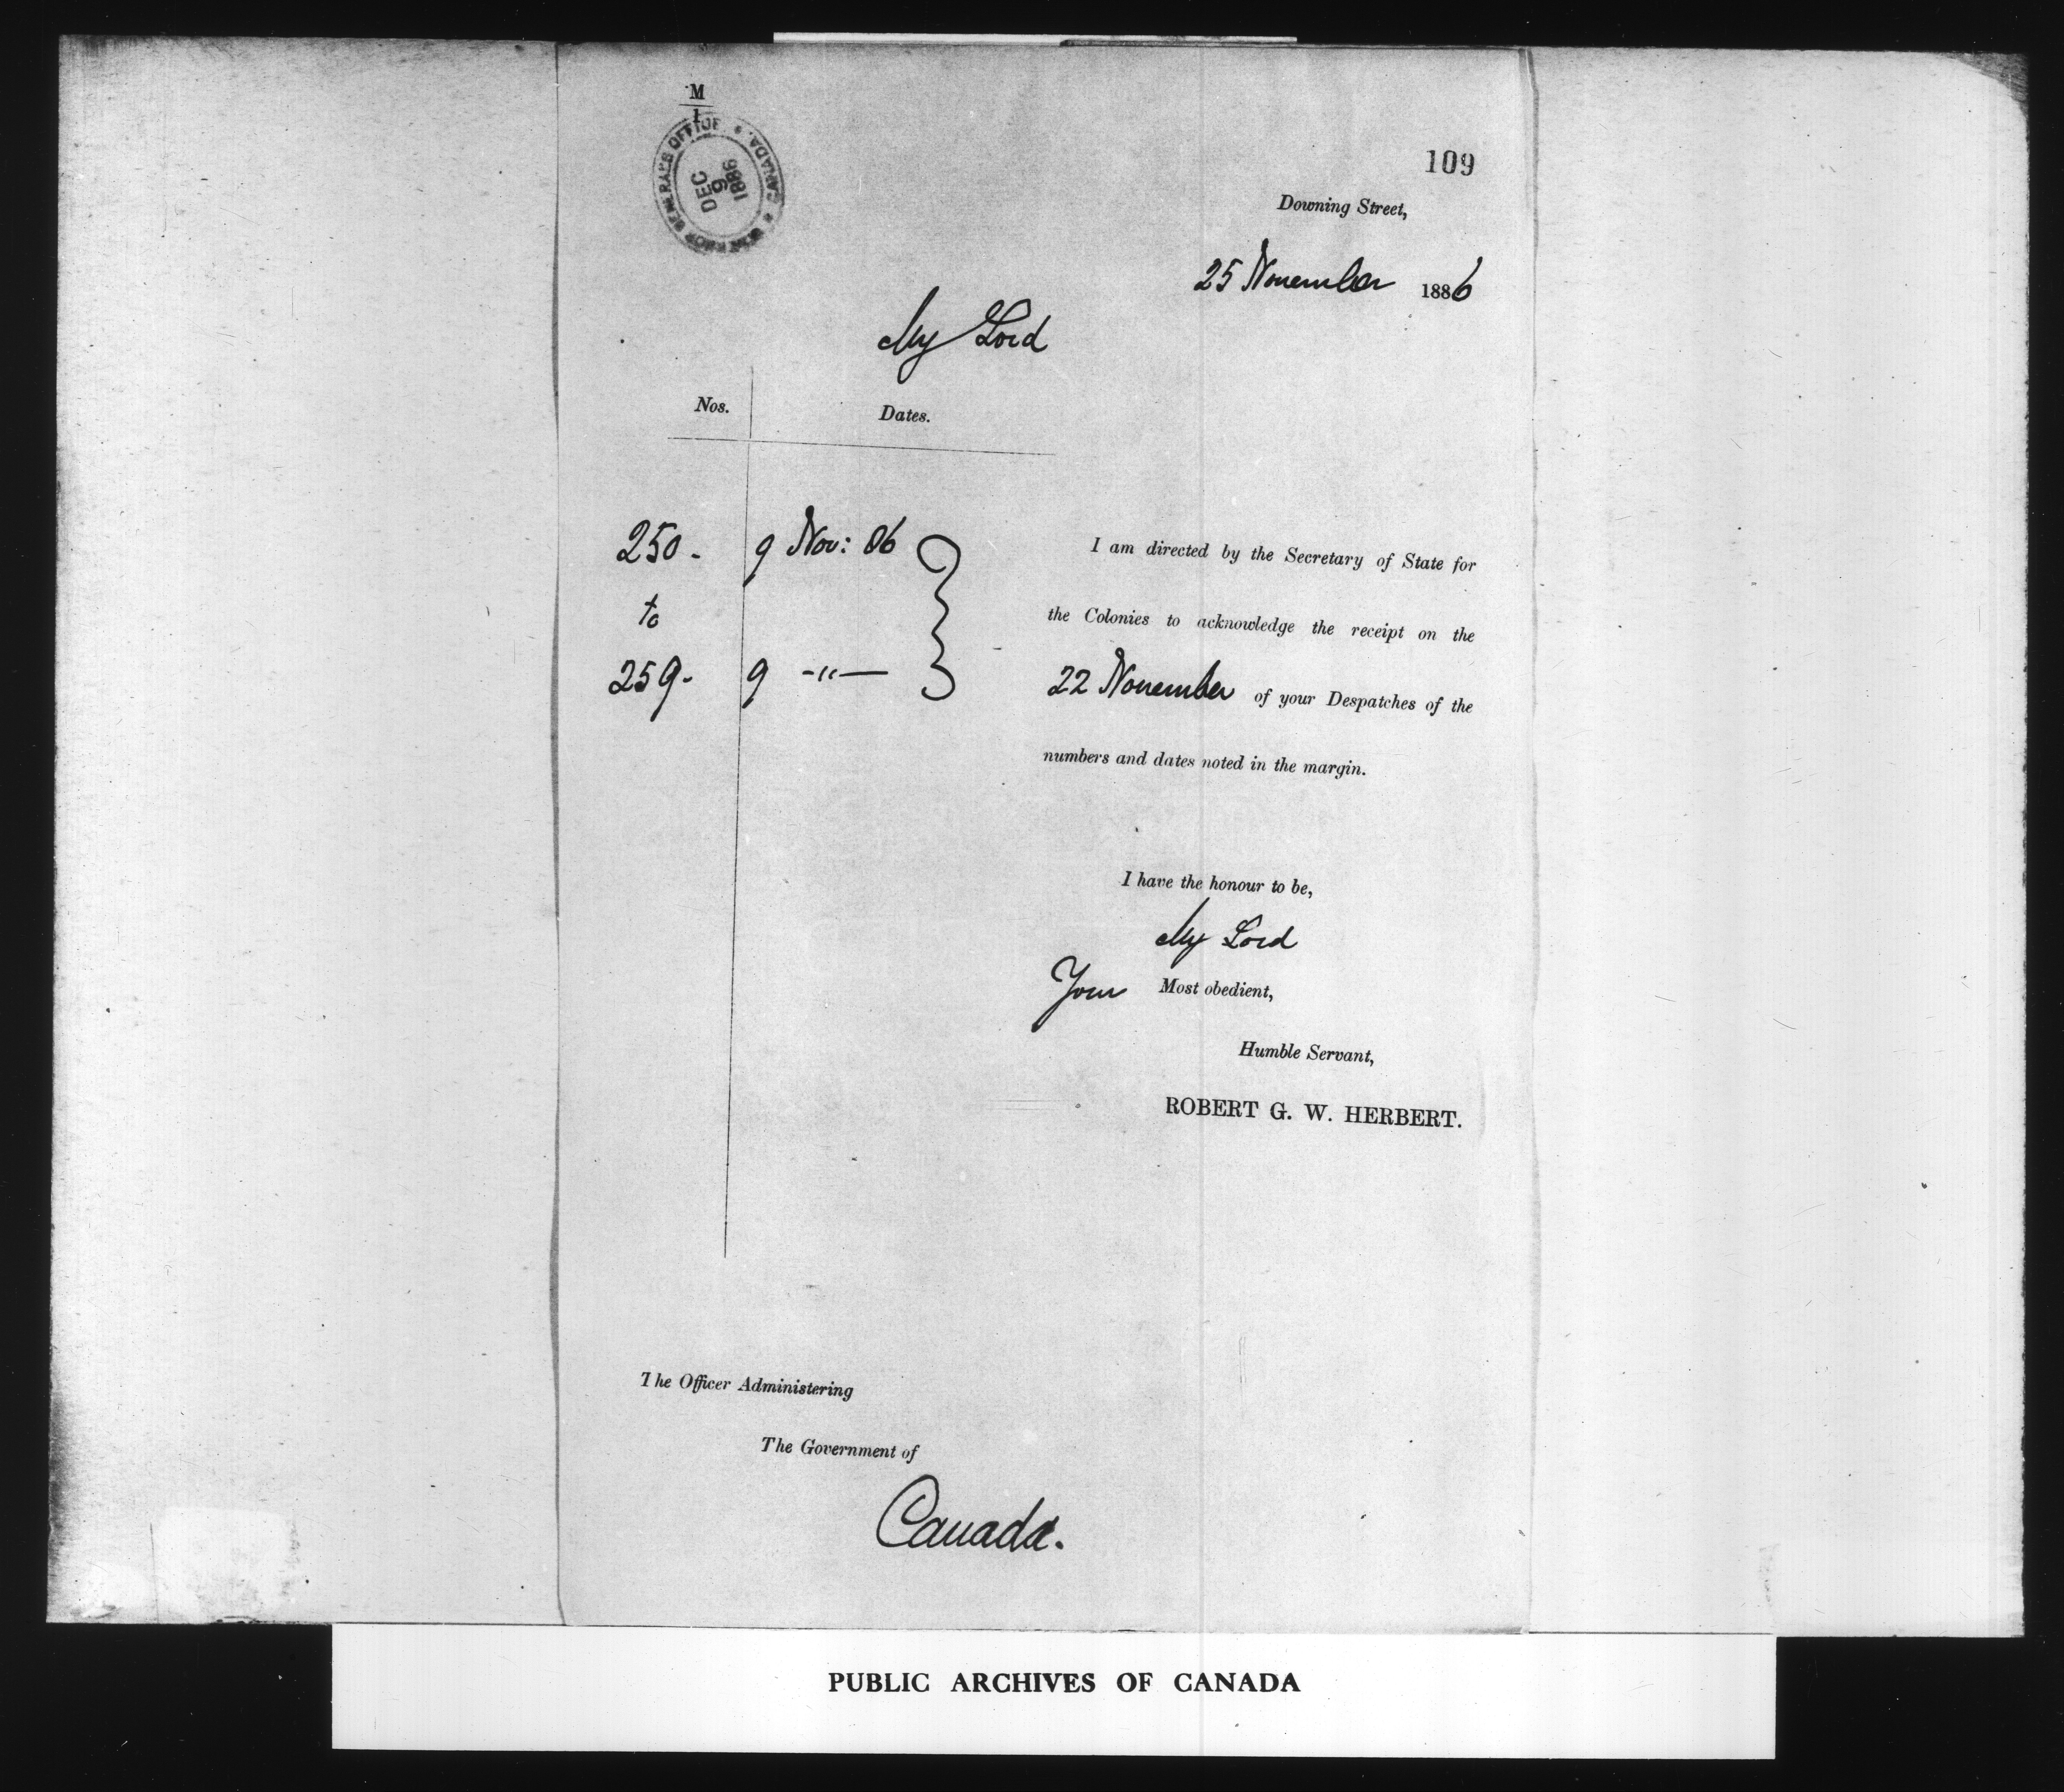 M
1
GOVERNOR GENERAL'S OFFICE * CANADA. *
DEC
9
1886
109
Downing Street,
25 November 1886
My Lord
Nos. Dates.
250 - 9 Nov: 86
to
259 - 9 -"-
I am directed by the Secretary of State for
the Colonies to acknowledge the receipt on the
22 November of your Despatches of the
numbers and dates noted in the margin.
I have the honour to be,
My Lord
Your Most obedient,
Humble Servant,
ROBERT G. W. HERBERT.
The Officer Administering
The Government of
Canada.
PUBLIC ARCHIVES OF CANADA